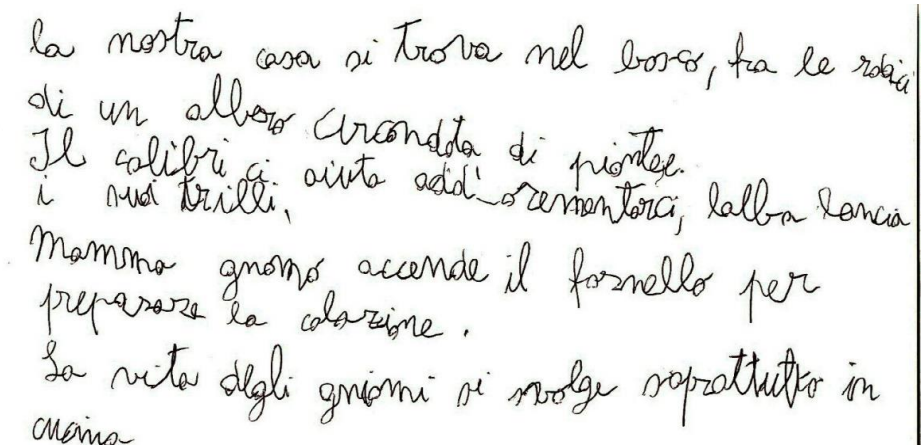 la nostra casa si trova nel bosco, fra le radici
di un albero circondata di piante.
Il colibrì ci aiuta add'ormentarci, lalba lancia
i suoi trilli,
Mamma gnomo accende il fornello per
preparare la colazione.
La vita degli gniomi si svolge soprattutto in
cucina